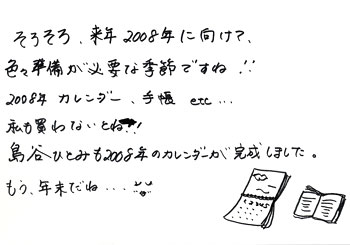 そろそろ、来年2008年に向けて、
色々準備が必要な季節ですね!!
2008年 カレンダー、手帳 etc...
私も買わないとね!!
島谷ひとみも2008年のカレンダーが完成しました。
もう、年末だね...